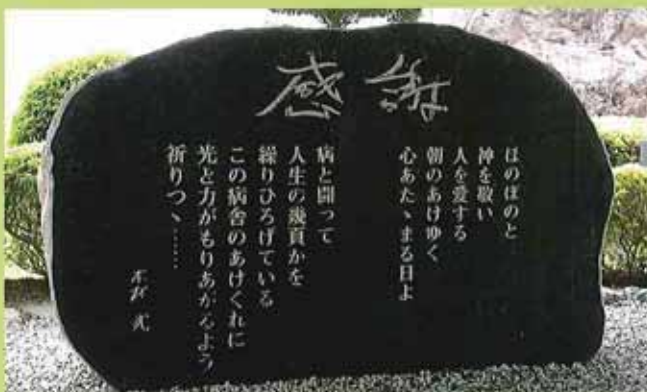 感謝
ほのぼのと
神を敬い
人を愛する
朝のあけゆく
心あたゝまる日よ
病と闘って
人生の幾頁かを
繰りひろげている
この病舎のあけくれに
光と力がもりあがるよう
祈りつゝ……